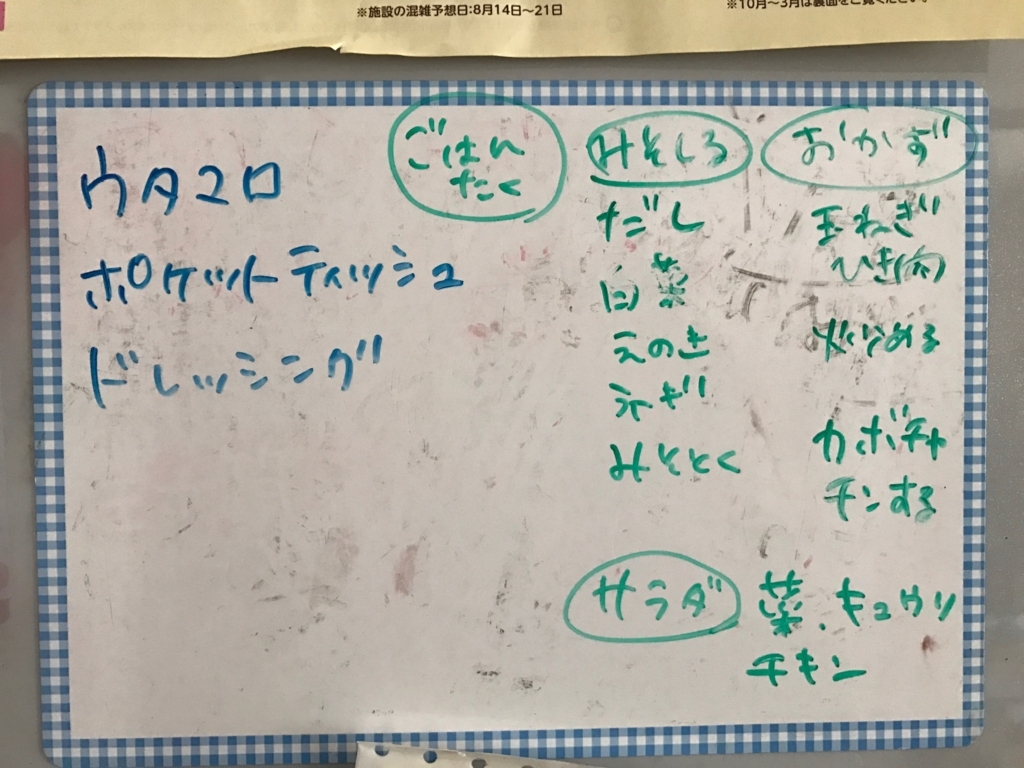 ※施設の混雑予想日:8月14日～21日
※10月～3月は裏面をご覧ください。
ウタマロ
ポケットティッシュ
ドレッシング
ごはん
たく
みそしる
だし
白菜
えのき
ネギ
みそとく
おかず
玉ねぎ
ひき(肉)
炒める
カボチャ
チンする
サラダ
菜、キュウリ
チキン